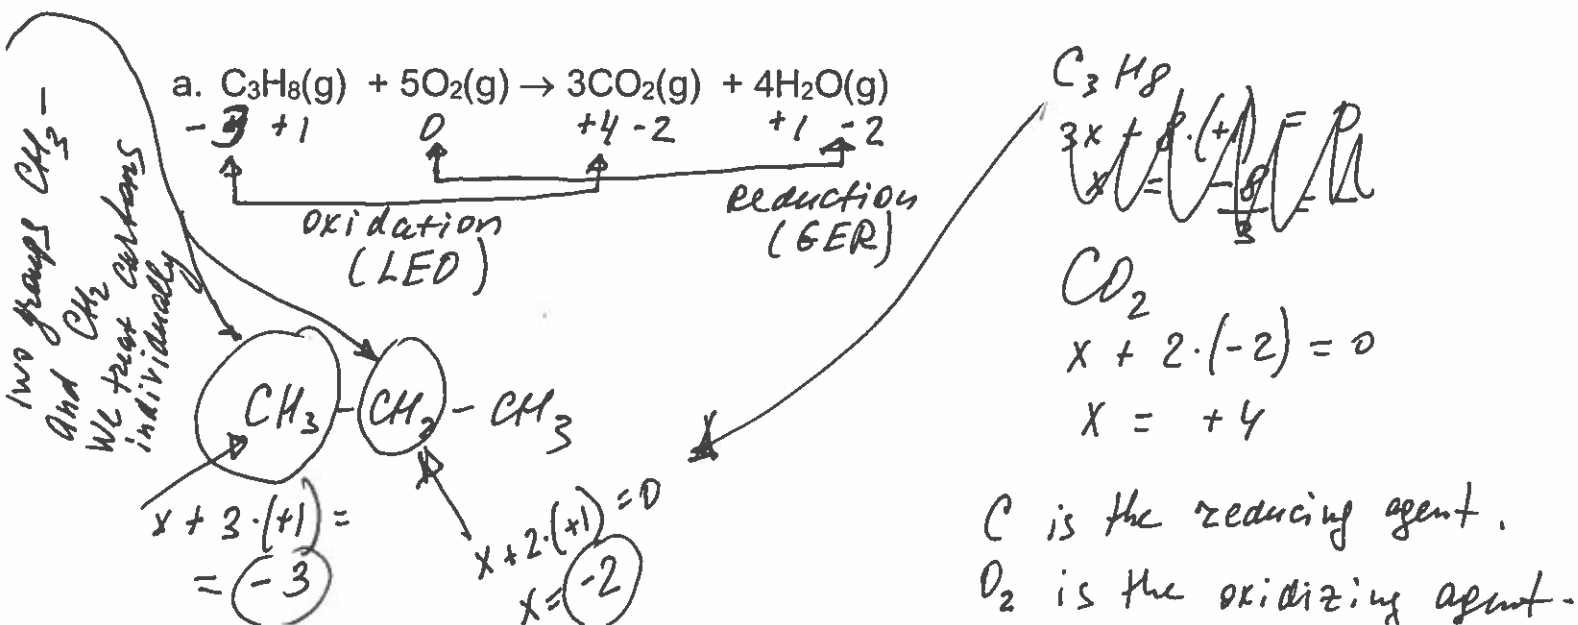 a. C₃H₈(g) + 5O₂(g) → 3CO₂(g) + 4H₂O(g)
-3 +1 0 +4 -2 +1 -2
oxidation
(LEO)
Reduction
(GER)
Two groups CH₃-
and CH₂
We treat carbons
individually
CH₃ - CH₂ - CH₃
x + 3·(+1) =
= -3
x + 2·(+1) = 0
x = -2
C₃H8
3x + 8·(+1) = 0
x = -8/3
CO₂
x + 2·(-2) = 0
x = +4
C is the reducing agent.
O₂ is the oxidizing agent.